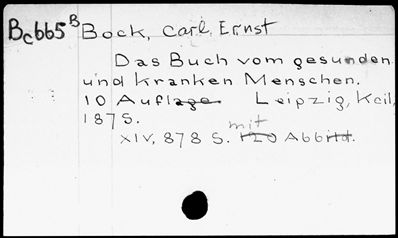 Bc665 B Bock, Carl Ernst
Das Buch vom gesunden
und kranken Menschen.
10 Auflage. Leipzig, Keil,
1875.
mit
XIV, 878 S. 120 Abbild.